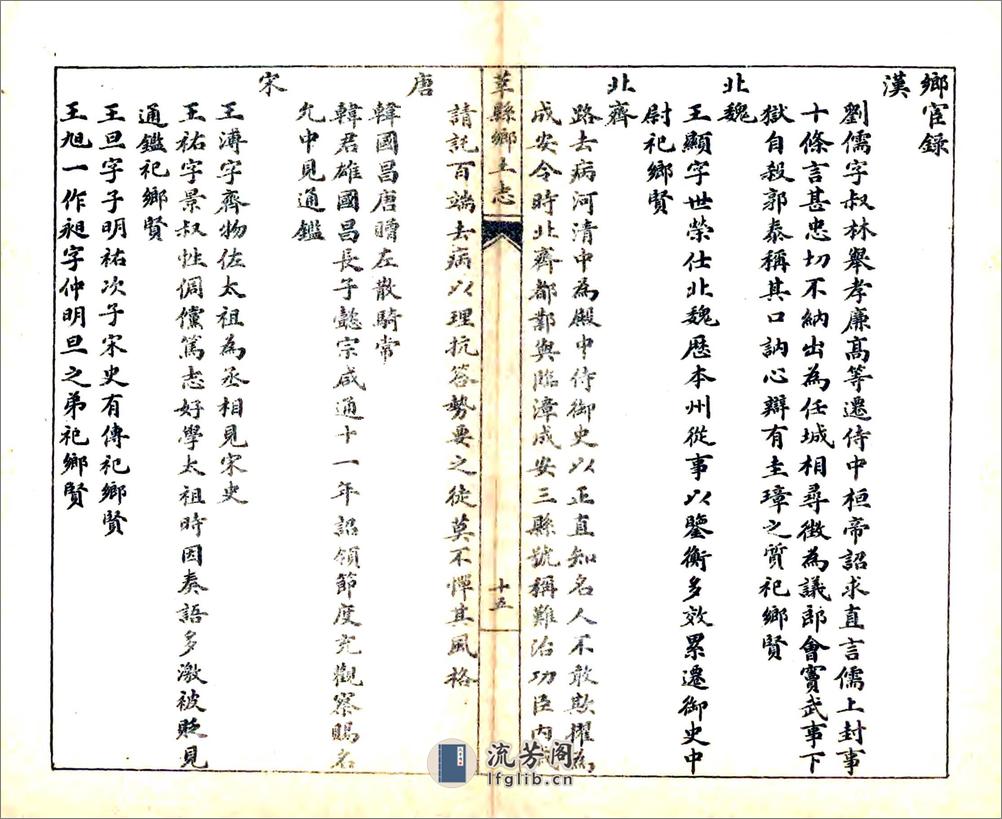 鄉宦錄
漢
劉儒字叔林舉孝廉高等遷侍中桓帝詔求直言儒上封事
十條言甚忠切不納出為任城相尋徵為議郎會竇武事下
獄自殺郭泰稱其口訥心辯有圭璋之質祀鄉賢
北魏
王顯字世榮仕北魏歷本州從事以鑒衡多效累遷御史中
尉祀鄉賢
北齊
路去病河清中為殿中侍御史以正直知名人不敢欺擢為
成安令時北齊都鄴與臨漳成安三縣號稱難治功臣內戚
莘縣鄉土志
十五
請託百端去病以理抗答勢要之徒莫不憚其風格
唐
韓國昌唐贈左散騎常
韓君雄國昌長子懿宗咸通十一年詔領節度充觀察賜名
允中見通鑑
宋
王溥字齊物佐太祖為丞相見宋史
王祐字景叔性倜儻篤志好學太祖時因奏語多激被貶見
通鑑祀鄉賢
王旦字子明祐次子宋史有傳祀鄉賢
王旭一作昶字仲明旦之弟祀鄉賢
流芳阁
lfglib.cn